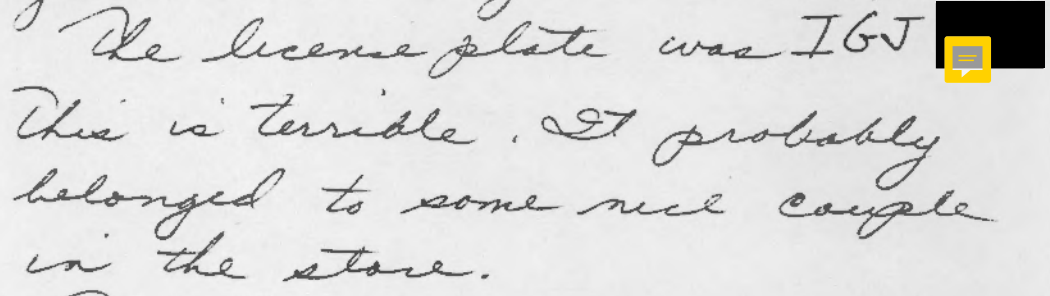 The license plate was IGJ
This is terrible. It probably
belonged to some nice couple
in the store.